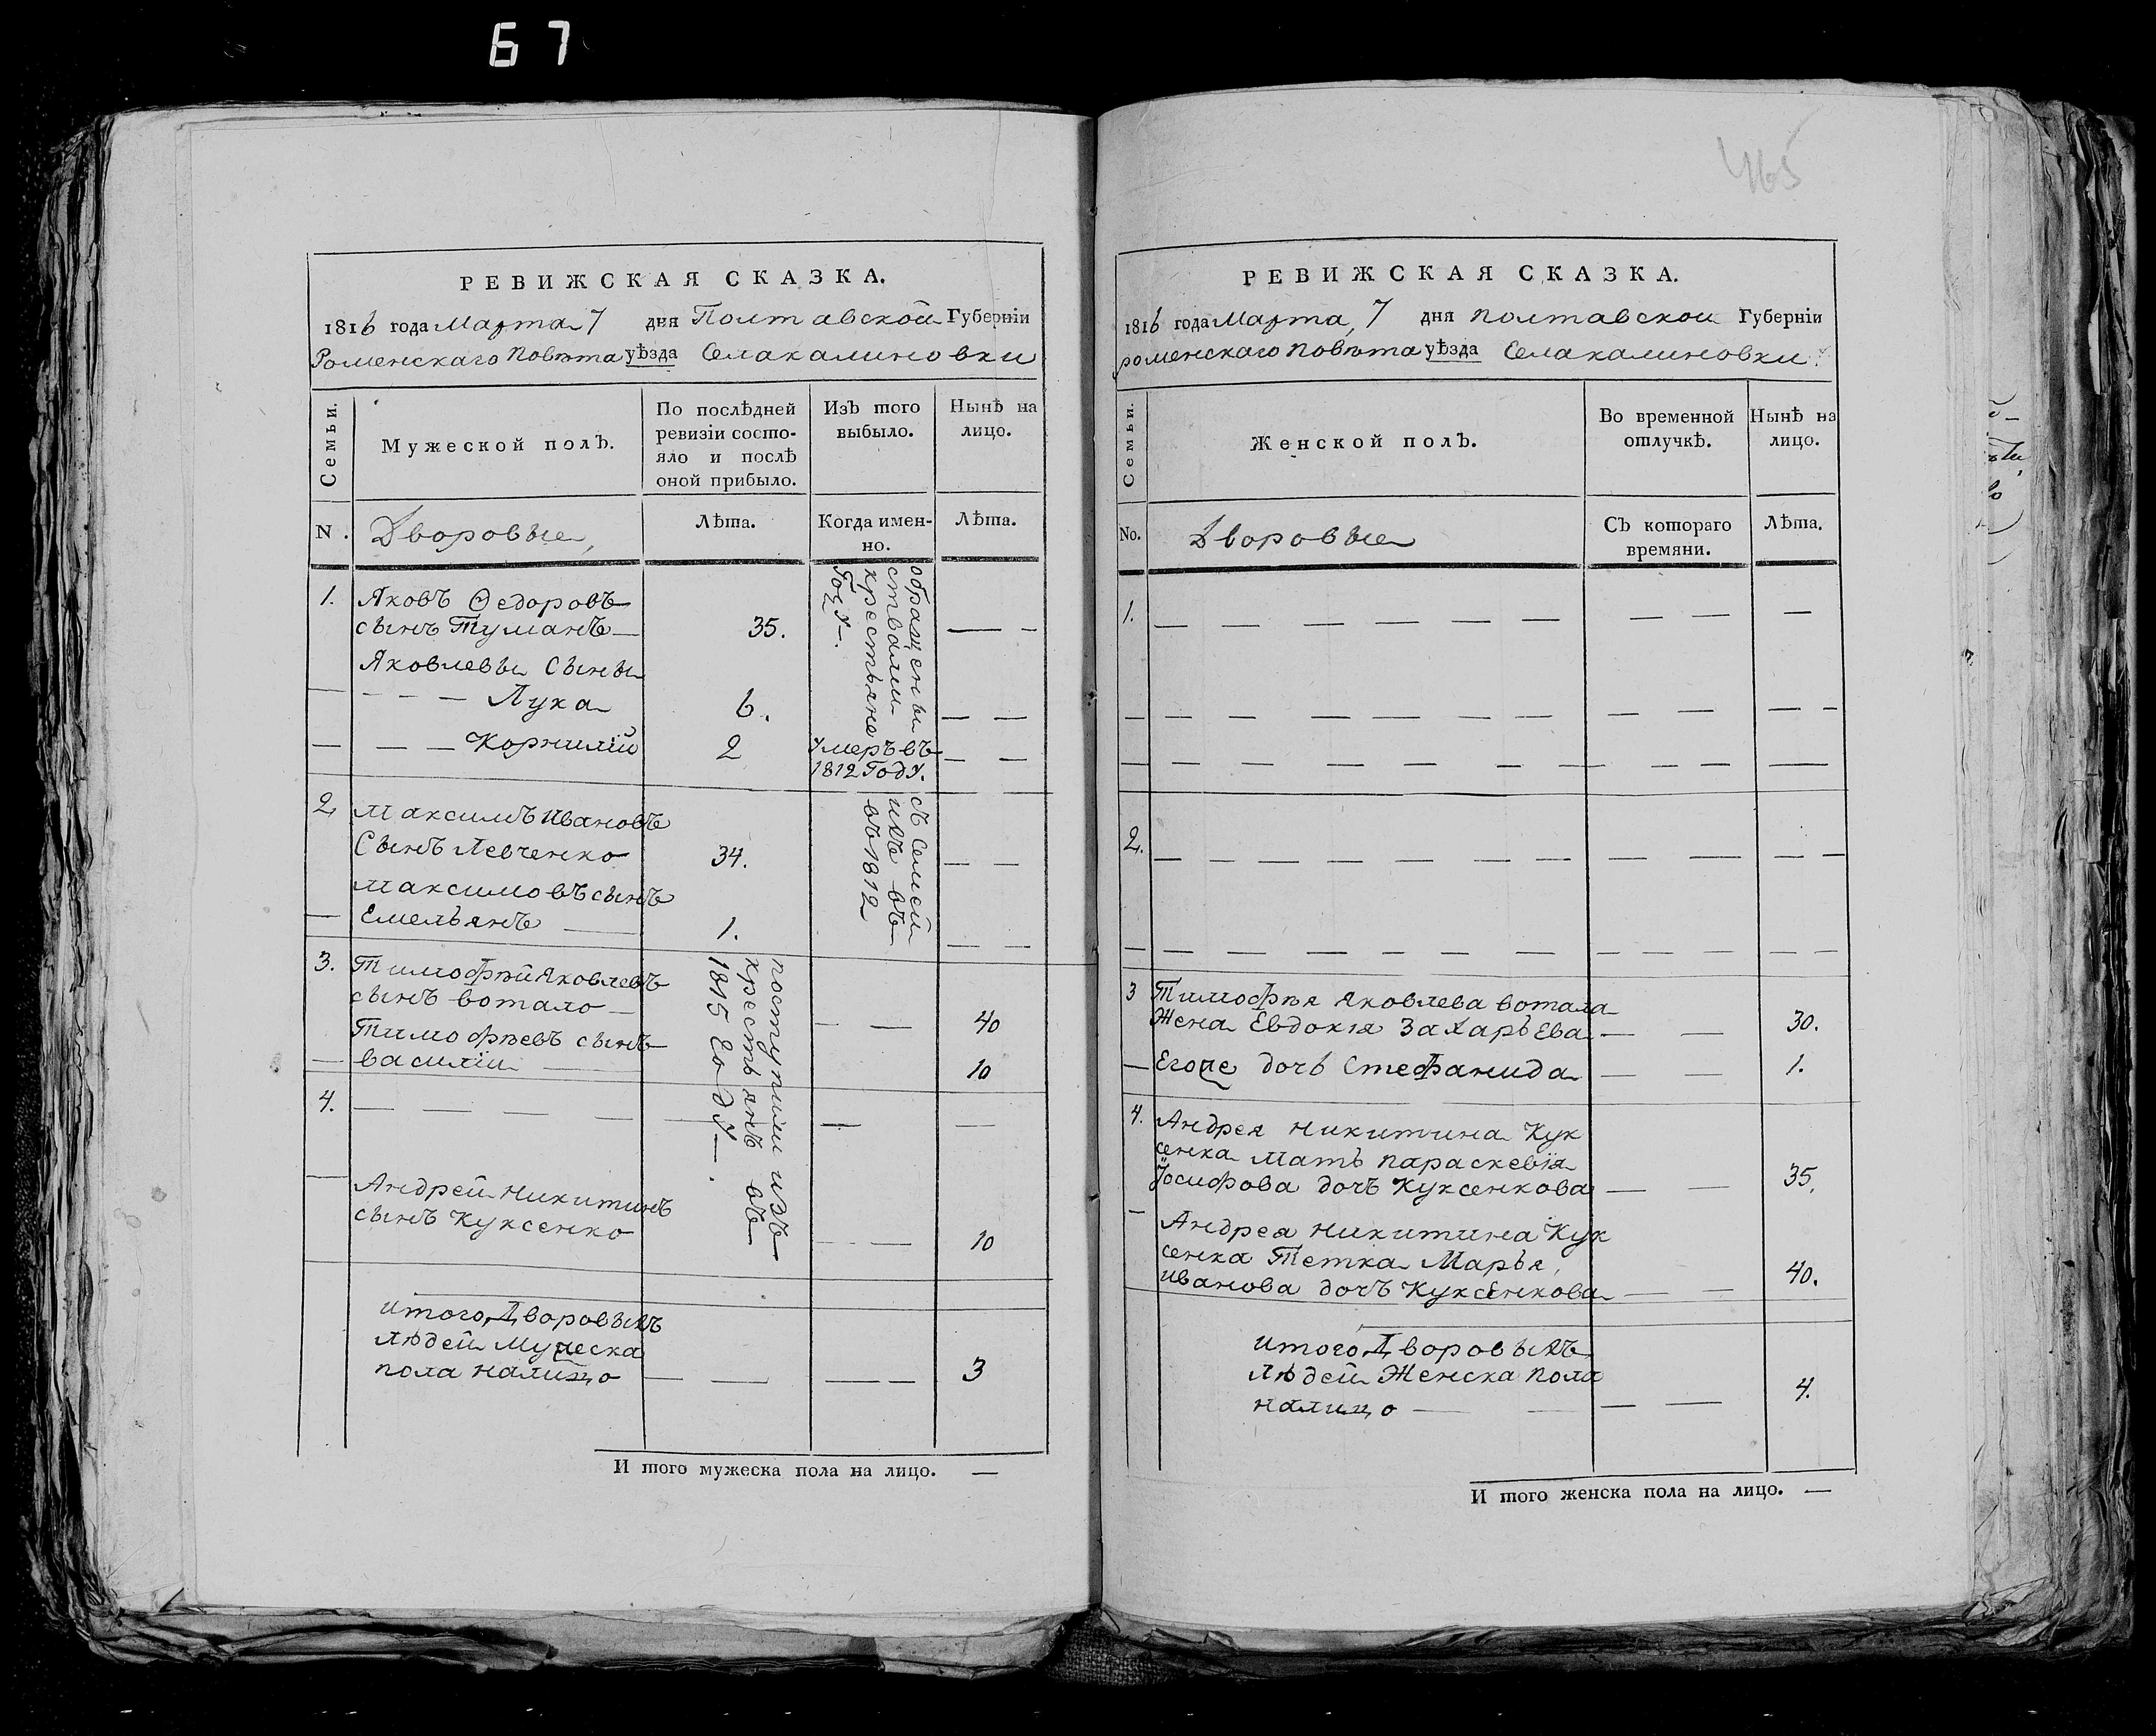 67
465
РЕВИЖСКАЯ СКАЗКА.
1816 года Марта 7 дня Полтавской Губерніи
Роменскаго Повѣта уѣзда Села калиновки
Семьи.
Мужеской полъ.
По послѣдней
ревизіи состо-
яло и послѣ
оной прибыло.
Изъ того
выбыло.
Нынѣ на
лицо.
N.
Дворовые
Лѣта.
Когда имен-
но.
Лѣта.
1. Яковъ Ѳедоровъ
сынъ Туманъ — 35. — —
Яковлевы Сыны
— — — Лука 6. — —
обращены съ Семей
ствами ихъ въ
крестьяне въ 1812
Году.
— — — — Корнилій 2 — —
умеръ въ
1812 Году.
2 Максимъ Ивановъ
Сынъ Левченко 34. — —
Максимовъ сынъ
— Емельянъ — 1. — —
3. Тимофѣй Яковлевъ
сынъ вотало — — — 40
Тимофѣевъ сынъ
— василій — 10
поступили изъ
крестьянъ въ
1815 Году — .
4. — — — — — — —
— Андрей Никитинъ
сынъ Куксенко — — 10
итого Дворовыхъ
людей Мужеска
пола налицо — — — — 3
И того мужеска пола на лицо. —
РЕВИЖСКАЯ СКАЗКА.
1816 года Марта, 7 дня полтавской Губерніи
роменскаго Повѣта уѣзда Села калиновки
Семьи.
Женской полъ.
Во временной
отлучкѣ.
Нынѣ на
лицо.
No.
Дворовые
Съ котораго
времяни.
Лѣта.
1. — — — — — — — — —
— — — — — — — — — — — —
— — — — — — — — — — — —
2. — — — — — — — — — — —
— — — — — — — — — — — —
3 Тимофѣя Яковлева вотала
Жена Евдокія Захарьева — — 30.
— Егоже дочь Стефанида — — 1.
4. Андрея Никитина Кук
сенка Мать параскевія
Іосифова дочъ Куксенкова — — 35.
— Андрея Никитина Кук
сенка Тетка Марья,
иванова дочъ Куксенкова — — 40.
итого Дворовыхъ
людей Женска пола
налицо — — — — 4.
И того женска пола на лицо. —